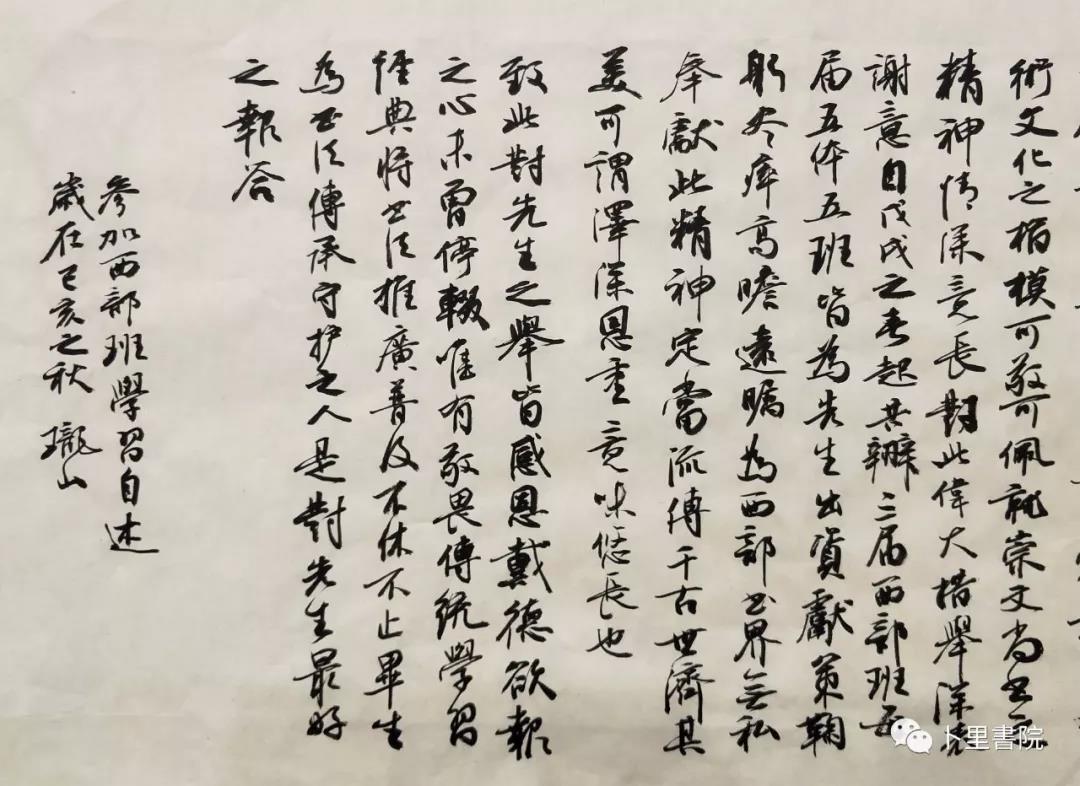 術文化之楷模可敬可佩崇文尚書之
精神情深意長對此偉大措舉深表
謝意自戊戌之春起共辦三届西部班每
届五体五班皆為先生出資獻策鞠
躬尽瘁高瞻遠矚為西部書界無私
奉獻此精神定當流傳千古世濟其
美可謂澤深恩重意味悠長也
致此對先生之舉皆感恩戴德欲報
之心未曾停輟唯有敬畏傳統學習
經典将書法推廣普及不休不止畢生
為書法傳承守护之人是對先生最好
之報答
參加西部班學習自述
歲在己亥之秋 瓏山
卜里書院